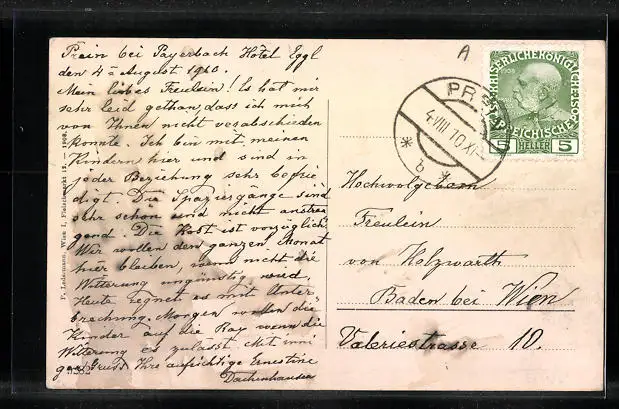 Prein bei Payerbach Hotel Eggl
den 4 = August 1910.
Mein liebes Freulein! Es hat mir
sehr leid gethan, dass ich mich
von Ihnen nicht verabschieden
konnte. Ich bin mit meinen
Kindern hier und sind in
jeder Beziehung sehr befrie
digt. Die Spaziergänge sind
sehr schön und nicht anstren
gend. Die Kost ist vorzüglich
Wir wollen den ganzen Monat
hier bleiben, wenn nicht die
Witterung ungünstig wird.
Heute regnet es mit Unter
brechung. Morgen wollen die
Kinder auf die Rax wenn die
Witterung es zulasst. Mit inni
gen Gruss Ihre aufrichtige Ernestine
Dachenhausen
A
5 HELLER 5
1908
4 VIII 10 XI
* b *
Hochwolgeboren
Freulein
von Holzwarth
Baden bei Wien
Valeriestrasse 10.
P. Ledermann, Wien I., Fleischmarkt 12. — 1908.